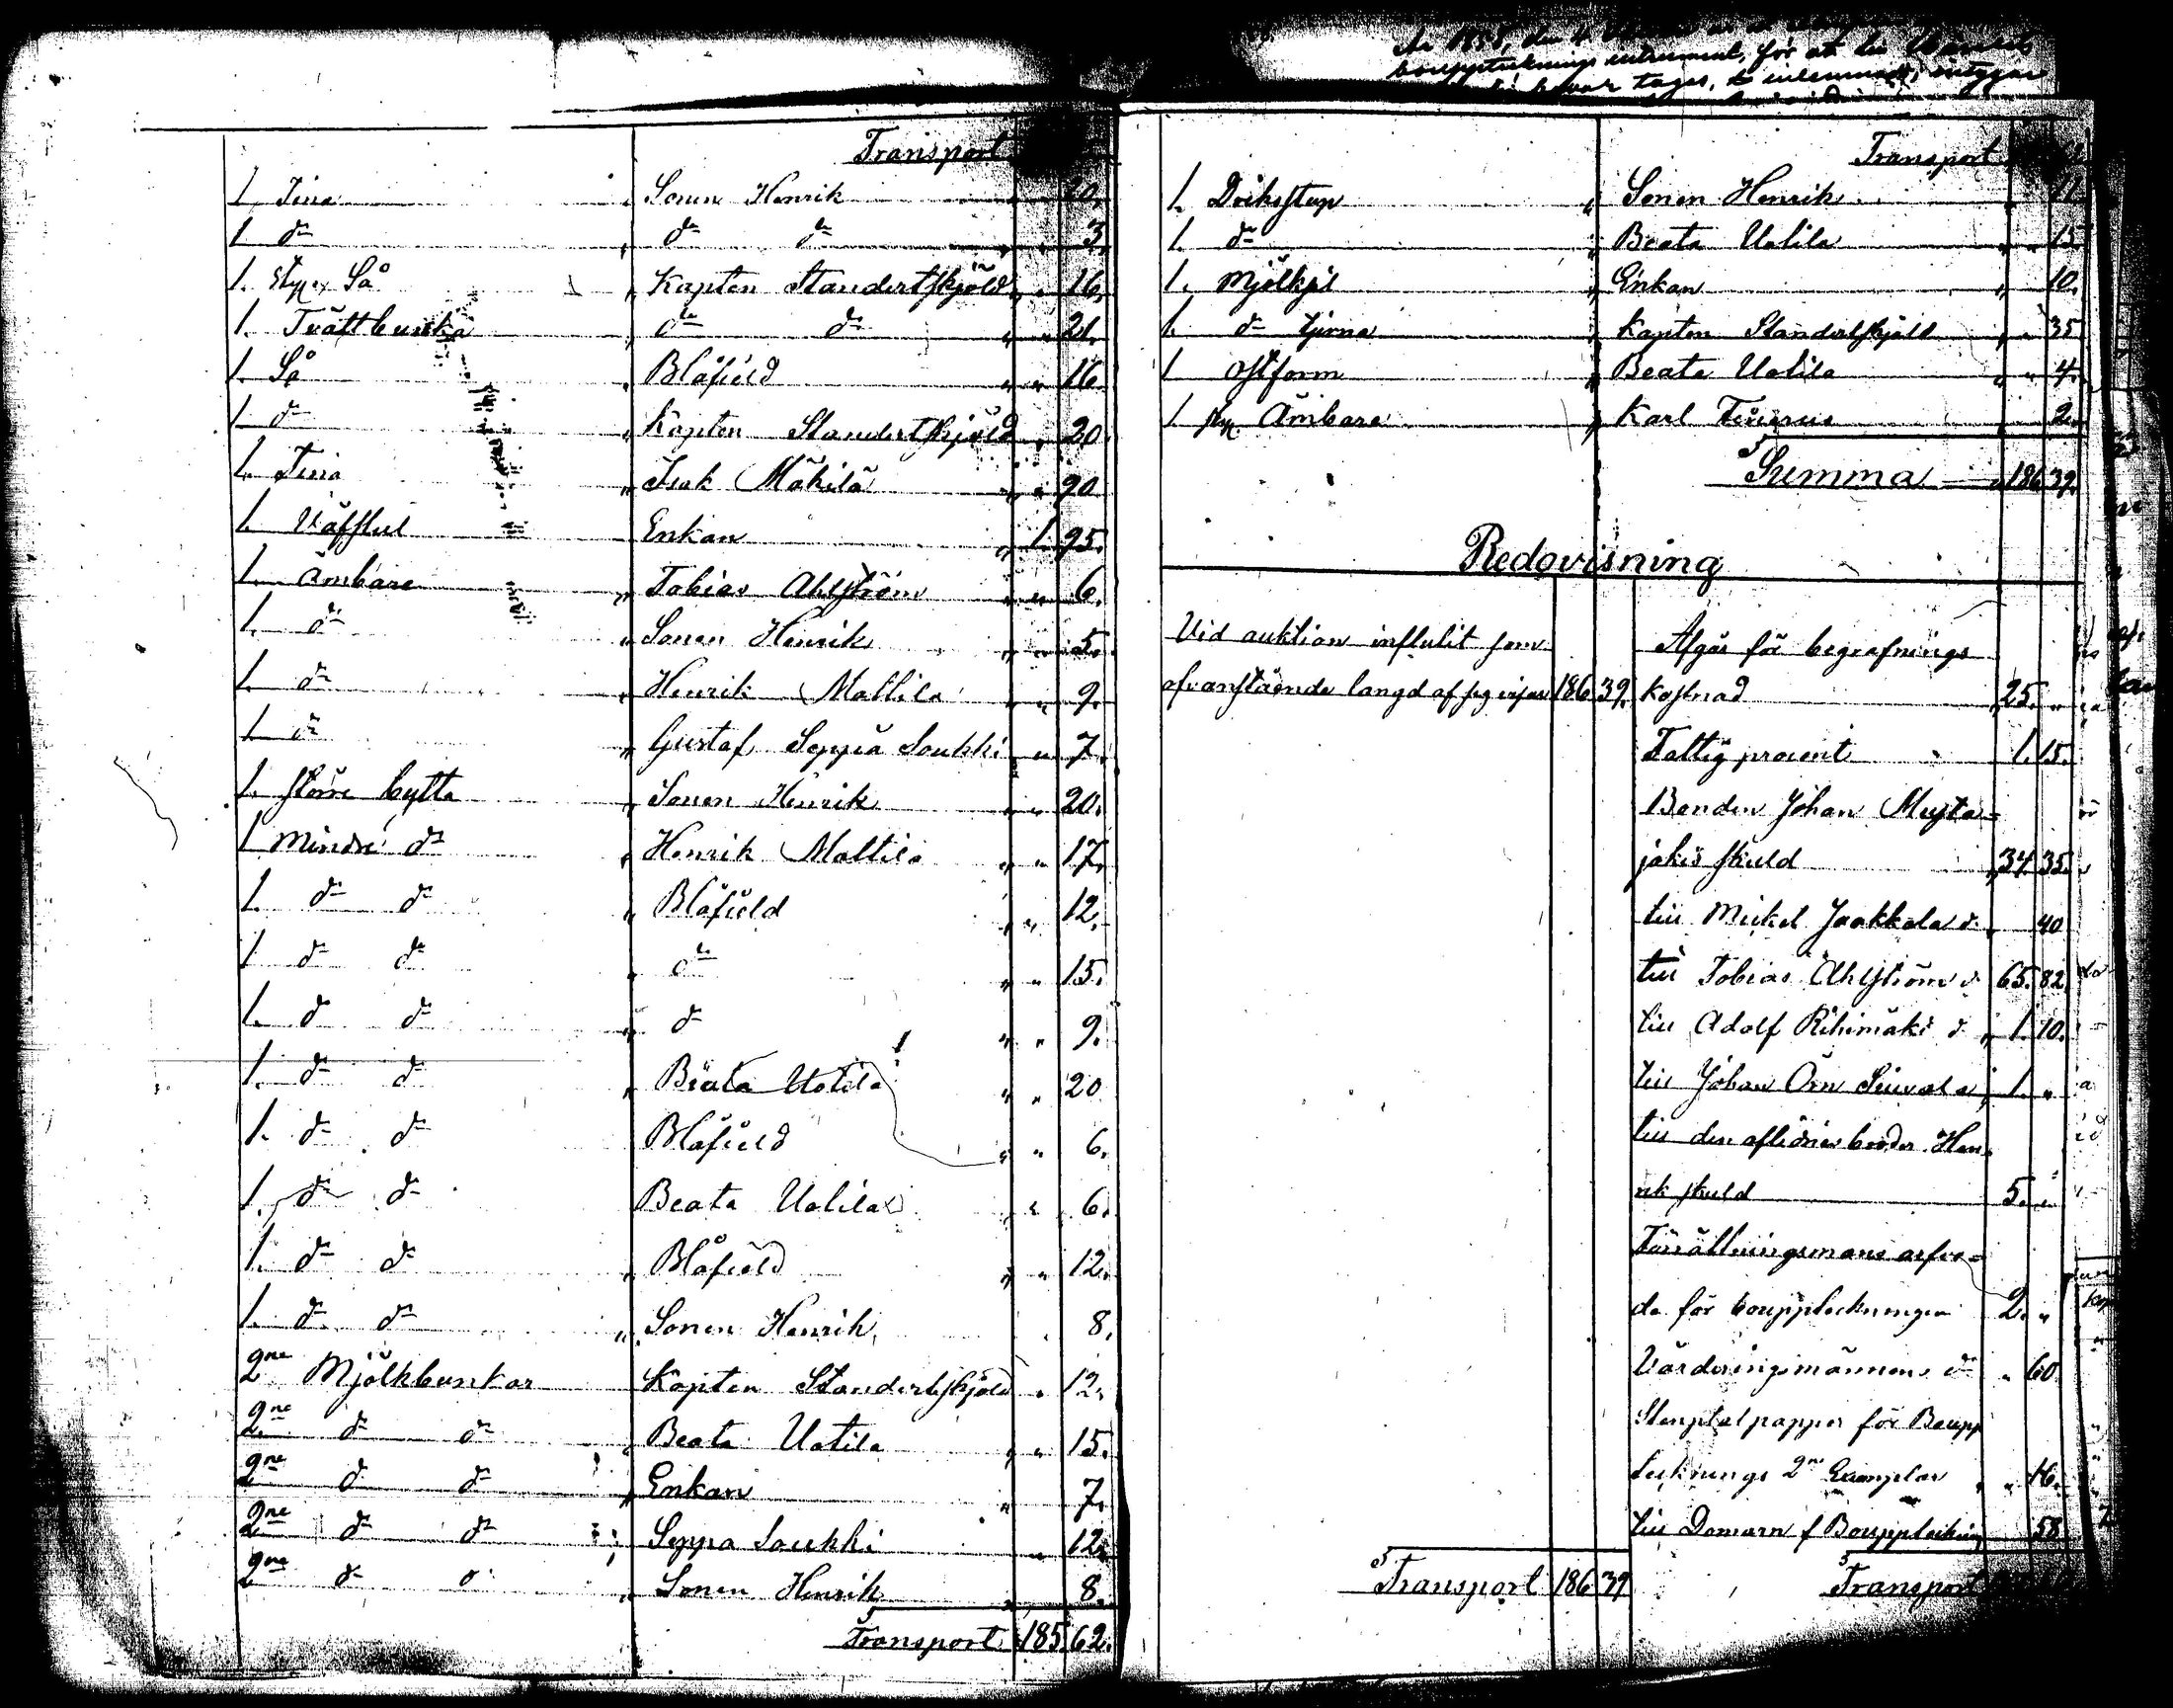 Transport
1. Tina " Sonen Henrik " " 10.
1 do " do do " " 3
1. Så " Kapten Standertskjöld " " 16.
1. Tvättbunka " do do " " 21.
1. Så " Blåfield " " 16
1 do " Kapten Standertskjöld " 20
1. Tina " Isak Mäkilä " " 90
1. Väfstol Enkan " 1. 95.
1. Ämbare " Tobias Ahlström " " 6.
1. do " Sonen Henrik " " 5.
1. do " Henrik Mattila " " 9.
1 do " Gustaf Seppä Soukki " 7.
1. större bytta " Sonen Henrik " " 20.
1 Mindre do " Henrik Mattila " " 17.
1. do do " Blåfield " " 12.
1 do do " do " " 15.
1. do do " do " " 9.
1. do do " Beata Uotila " " 20
1. do do Blåfield " " 6.
1. do do Beata Uotila " 6.
1. do do " Blåfield " " 12.
1. do do " Sonen Henrik 8.
2ne Mjölkbunkar Kapten Standertskjöld " 12.
2ne do do " Beata Uotila " " 15.
2ne do do " Enkan " 7.
2ne do do " Seppä Soukki " 12.
2ne do do " Sonen Henrik " 8.
Transport 185 62.
bouppteckningsinstrument, för att
tages,
Transport
1. " Sonen Henrik " 11.
1. do " Beata Uotila " " 15
1. " Enkan " 10.
1. do tjerna " Kapten Standertskjöld " " 35
1 ostform " Beata Uotila " " 4.
1 Ämbare " Karl " 2.
Summa " 186 39.
Redovisning
Vid auktion influtit som
ofvanstående längd 186 39.
Afgår för begrafnings
kostnad " 25. "
Fattig procent 1. 15.
Bonden Johan Musta=
jokis skuld " 34 35.
till Mickel Jaakkola do " 40
till Tobias Ahlström do 65. 82.
till Adolf Rihimäki do " 1. 10.
till Johan Örn 1. "
till den aflidnes broder Hen=
rik skuld 5. "
Förrättningsmans arfvo=
de för bouppteckningen 2. "
Värderingsmännens do " 60
Stenplatpapper för Boupp
tecknings 2ne Exemplar " " 16.
till Domarn f Bouppteckning 58
Transport 186 39
Transport